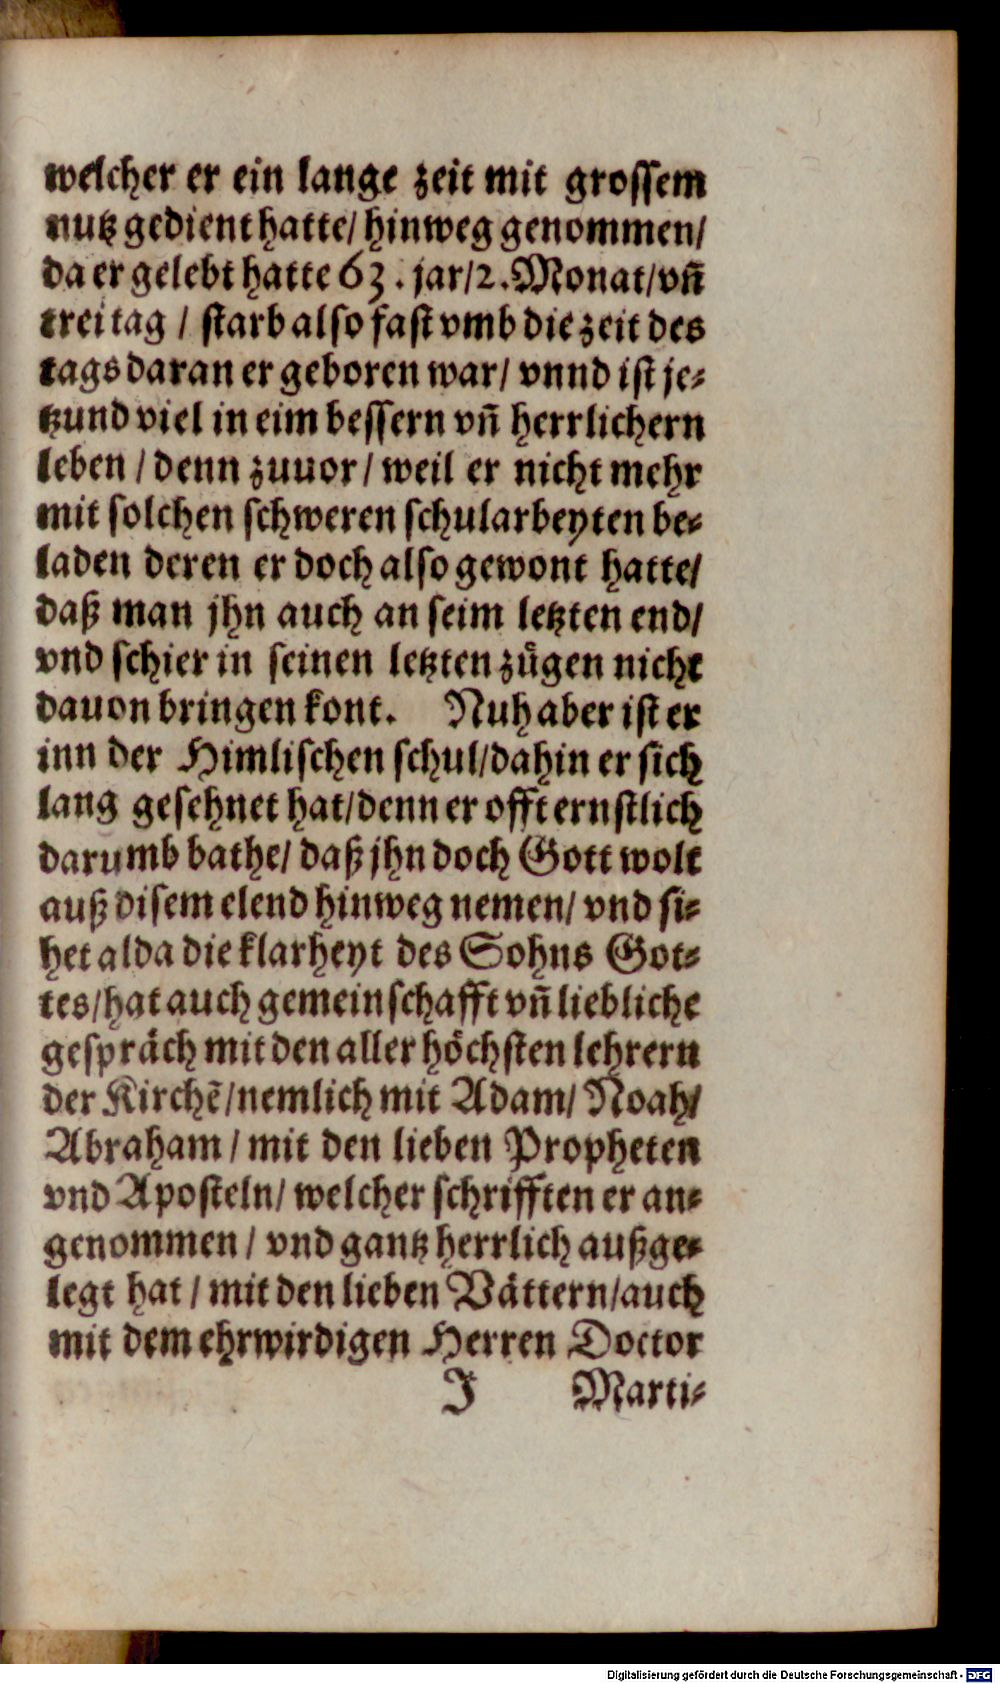 welcher er ein lange zeit mit grossem
nutz gedient hatte/ hinweg genommen/
da er gelebt hatte 63. jar/2. Monat/vñ
trei tag / starb also fast vmb die zeit des
tags daran er geboren war/ vnnd ist je⸗
tzund viel in eim bessern vñ herrlichern
leben / denn zuuor / weil er nicht mehr
mit solchen schweren schularbeyten be⸗
laden deren er doch also gewont hatte/
daß man jhn auch an seim letzten end/
vnd schier in seinen letzten zügen nicht
dauon bringen kont. Nuh aber ist er
inn der Himlischen schul/dahin er sich
lang gesehnet hat/denn er offt ernstlich
darumb bathe/ daß jhn doch Gott wolt
auß disem elend hinweg nemen/ vnd si⸗
het alda die klarheyt des Sohns Got⸗
tes/hat auch gemeinschafft vñ liebliche
gespräch mit den aller höchsten lehrern
der Kirchẽ/nemlich mit Adam/ Noah/
Abraham / mit den lieben Propheten
vnd Aposteln/ welcher schrifften er an⸗
genommen / vnd gantz herrlich außge⸗
legt hat / mit den lieben Vättern/auch
mit dem ehrwirdigen Herren Doctor
J Marti⸗
Digitalisierung gefördert durch die Deutsche Forschungsgemeinschaft - DFG